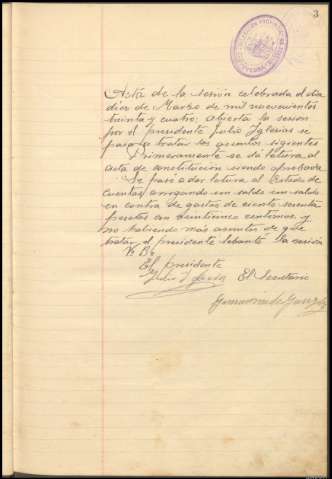 3
Acta de la sesión celebrada el día
diez de Marzo de mil novecientos
treinta y cuatro, abierta la sesion
por el presidente Julio Iglesias se
pasa a tratar los asuntos sigientes
Primeramente se da letura al
acta de constitución siendo aprobada
Se pasó a dar letura al Estado de
Cuentas arrojando un saldo un saldo
en contra de gastos de ciento
pesetas con centimos y
no habiendo más asuntos de que
tratar el presidente lebantó la sesión
Vº Bº
El presidente
Julio Iglesias El Secretario